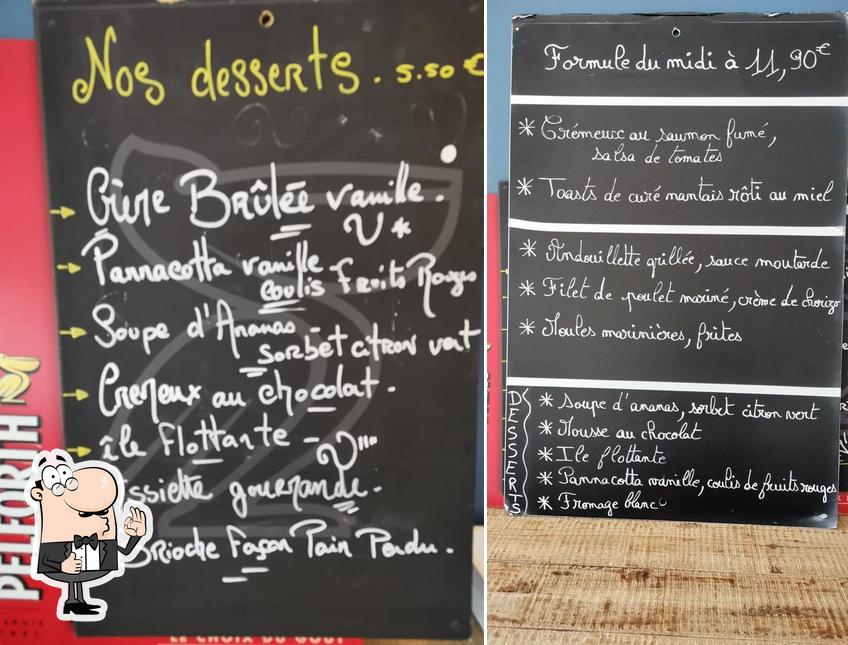 Nos desserts. 5.50 €
Crème Brûlée vanille.
Pannacotta vanille
coulis fruits Rouges
Soupe d'Ananas -
Sorbet citron vert
Cremeux au chocolat.
île flottante -
ssiette gourmande.
Brioche Façon Pain Perdu.
PELFORTH
DEPUIS
LE CHOIX DU GOÛT
Formule du midi à 11,90€
* Crémeux au saumon fumé,
salsa de tomates
* Toasts de curé nantais rôti au miel
* Andouillette grillée, sauce moutarde
* Filet de poulet mariné, crème de chorizo
* Moules marinières, frites
DESSERTS
* Soupe d'ananas, sorbet citron vert
* Mousse au chocolat
* Ile flottante
* Pannacotta vanille, coulis de fruits rouges
* Fromage blanc